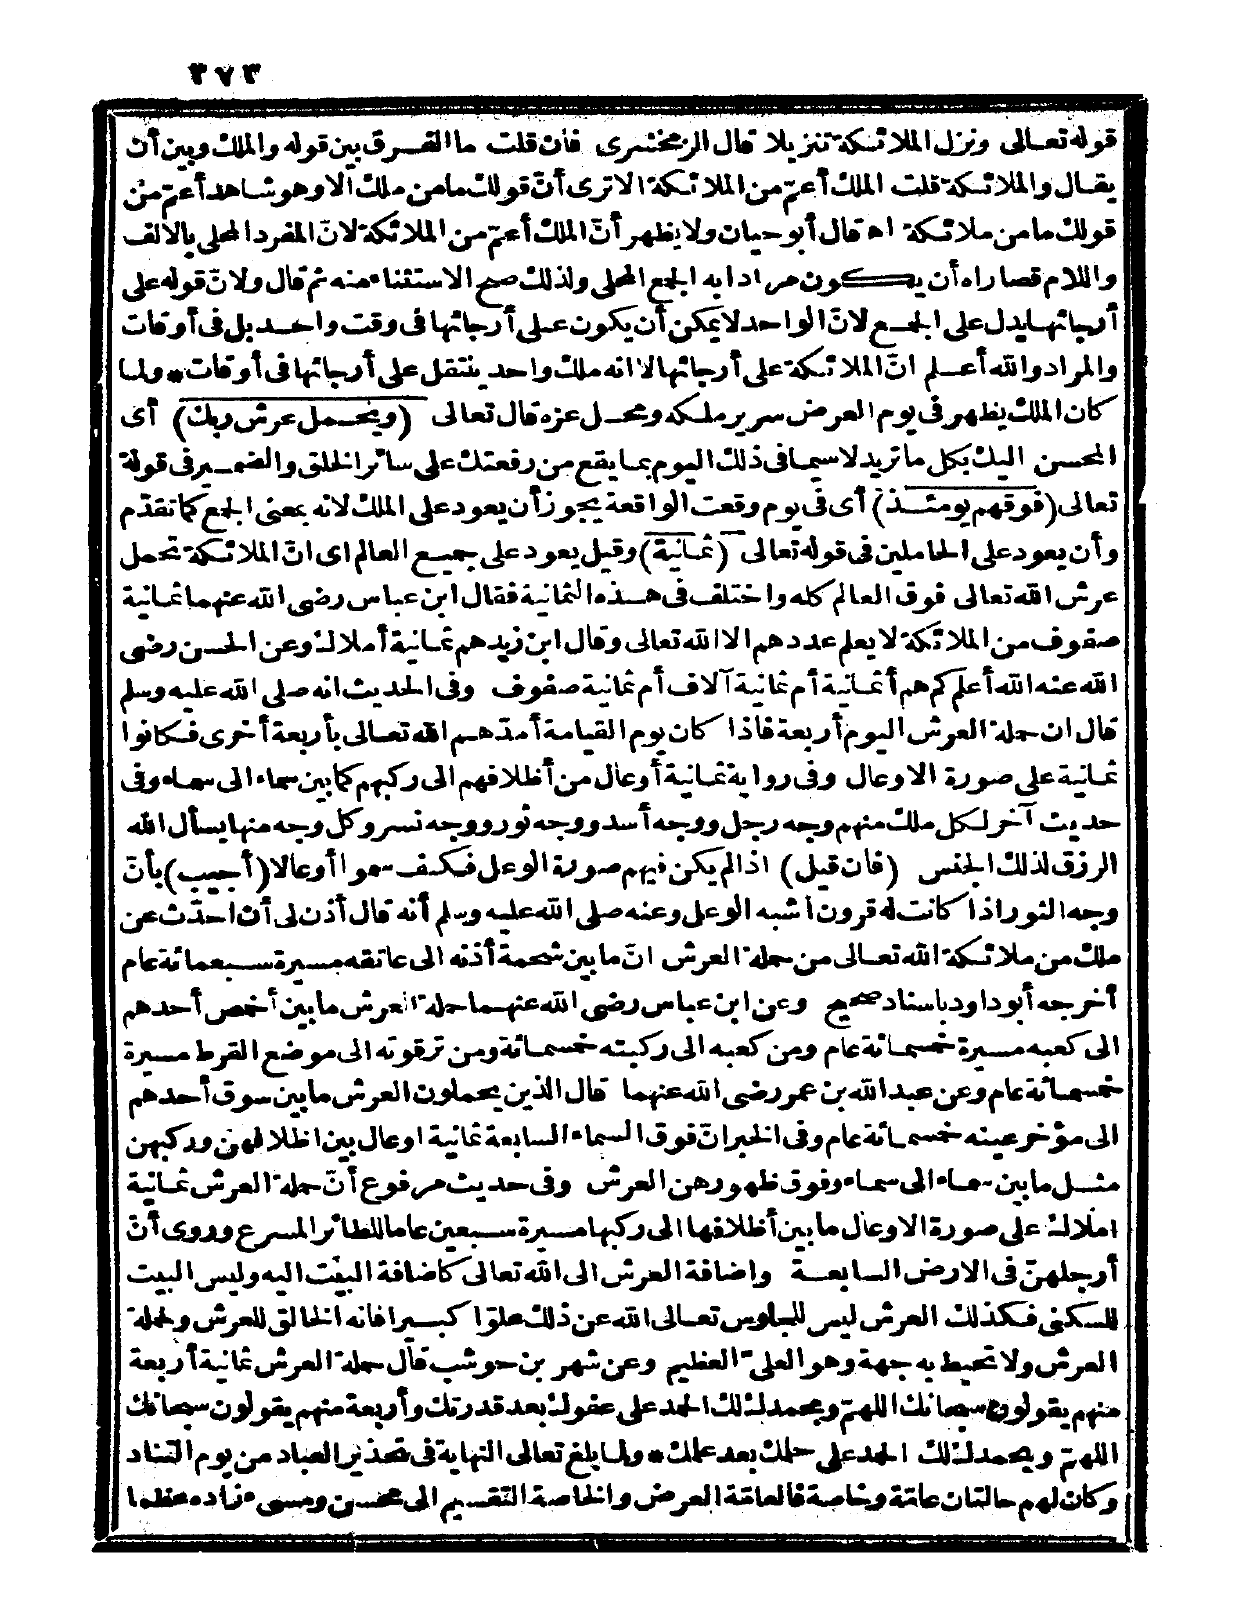 ٣٧٣
قوله تعالى ونزل الملائكة تنزيلا قال الزمخشرى فان قلت ما الفرق بين قوله والملك وبين أن
يقال والملائكة قلت الملك أعمّ من الملائكة الا ترى أنّ قولك ما من ملك الا وهو شاهد أعمّ من
قولك ما من ملائكة اه قال أبو حيان ولا يظهر أنّ الملك أعمّ من الملائكة لانّ المفرد المحلى بالالف
واللام قصاراه أن يكون مرادا به الجمع المحلى ولذلك صح الاستثناء منه ثم قال ولانّ قوله على
أرجائها يدل على الجمع لانّ الواحد لا يمكن أن يكون على أرجائها فى وقت واحد بل فى أوقات
والمراد والله أعلم انّ الملائكة على أرجائها لا انه ملك واحد ينتقل على أرجائها فى أوقات * ولما
كان الملك يظهر فى يوم العرض سرير ملكه ومحل عزه قال تعالى (ويحمل عرش ربك) أى
المحسن اليك بكل ما تريد لا سيما فى ذلك اليوم بما يقع من رفعتك على سائر الخلق والضمير فى قوله
تعالى (فوقهم يومئذ) أى فى يوم وقعت الواقعة يجوز أن يعود على الملك لانه بمعنى الجمع كما تقدّم
وأن يعود على الحاملين فى قوله تعالى (ثمانية) وقيل يعود على جميع العالم اى انّ الملائكة تحمل
عرش الله تعالى فوق العالم كله واختلف فى هذه الثمانية فقال ابن عباس رضى الله عنهما ثمانية
صفوف من الملائكة لا يعلم عددهم الا الله تعالى وقال ابن زيد هم ثمانية أملاك وعن الحسن رضى
الله عنه الله أعلم كم هم أثمانية أم ثمانية آلاف أم ثمانية صفوف وفى الحديث انه صلى الله عليه وسلم
قال ان حملة العرش اليوم أربعة فاذا كان يوم القيامة أمدّهم الله تعالى بأربعة أخرى فكانوا
ثمانية على صورة الاوعال وفى رواية ثمانية أوعال من أظلافهم الى ركبهم كما بين سماء الى سماء وفى
حديث آخر لكل ملك منهم وجه رجل ووجه أسد ووجه ثور ووجه نسر وكل وجه منها يسأل الله
الرزق لذلك الجنس (فان قيل) اذا لم يكن فيهم صورة الوعل فكيف سموا أوعالا (أجيب) بأنّ
وجه الثور اذا كانت له قرون أشبه الوعل وعنه صلى الله عليه وسلم أنه قال أذن لى أن احدّث عن
ملك من ملائكة الله تعالى من حملة العرش انّ ما بين شحمة أذنه الى عاتقه مسيرة سبعمائة عام
أخرجه أبو داود باسناد صحيح وعن ابن عباس رضى الله عنهما حملة العرش ما بين أخمص أحدهم
الى كعبه مسيرة خمسمائة عام ومن كعبه الى ركبته خمسمائة ومن ترقوته الى موضع القرط مسيرة
خمسمائة عام وعن عبد الله بن عمر رضى الله عنهما قال الذين يحملون العرش ما بين سوق أحدهم
الى مؤخر عينه خمسمائة عام وفى الخبر انّ فوق السماء السابعة ثمانية اوعال بين اظلافهن وركبهن
مثل ما بين سماء الى سماء وفوق ظهورهن العرش وفى حديث مرفوع أنّ حملة العرش ثمانية
املاك على صورة الاوعال ما بين أظلافها الى ركبها مسيرة سبعين عاما للطائر المسرع وروى أنّ
أرجلهنّ فى الارض السابعة واضافة العرش الى الله تعالى كاضافة البيت اليه وليس البيت
للسكنى فكذلك العرش ليس للجلوس تعالى الله عن ذلك علوّا كبيرا فانه الخالق للعرش ولحملة
العرش ولا تحيط به جهة وهو العلىّ العظيم وعن شهر بن حوشب قال حملة العرش ثمانية أربعة
منهم يقولون سبحانك اللهمّ وبحمدك لك الحمد على عفوك بعد قدرتك وأربعة منهم يقولون سبحانك
اللهمّ وبحمدك لك الحمد على حلمك بعد علمك * ولما بلغ تعالى النهاية فى تحذير العباد من يوم التناد
وكان لهم حالتان عامّة وخاصة فالعامّة العرض والخاصة التقسيم الى محسن ومسىء زاده عظما